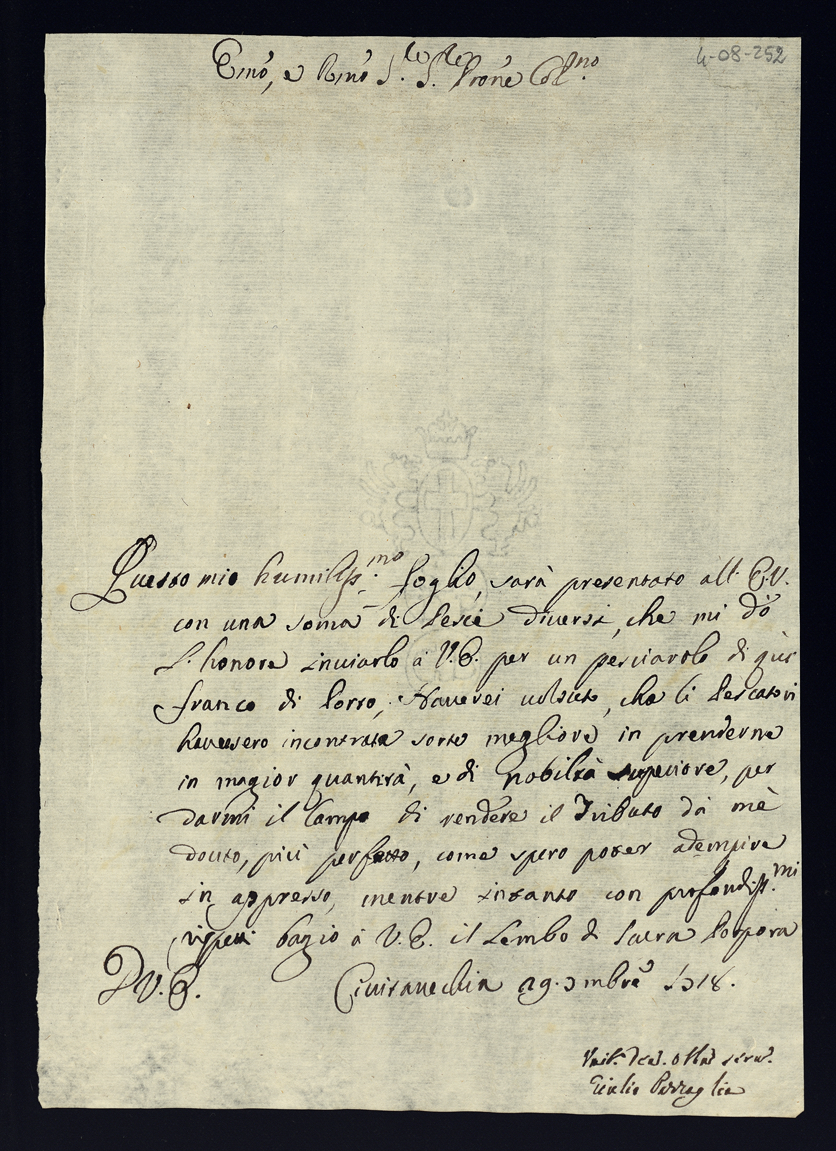 4-08-252
Emo, e Rmo S.re S.re Prone Col.mo
Questo mio humiliss.mo foglio, sarà presentato all' E.V.
con una soma di Pesce diversi, che mi dò
l'honore inviarlo à V.E. per un pesciarolo di qui
franco di Porto, Haverei voluto, che li Pescatori
havessero incontrata sorte megliore in prenderne
in magior quantità, e di nobiltà superiore, per
darmi il Campo di rendere il Tributo dà mè
douto, più perfetto, come spero poter adempire
in appresso, mentre intanto con profondiss.mi
rispetti bagio à V.E. il Lembo d Sacra Porpora
D V.E. Civitavechia 29. 9mbre 1718.
Vmil.o Dev. Obbl serv.
Giulio Pazzaglia